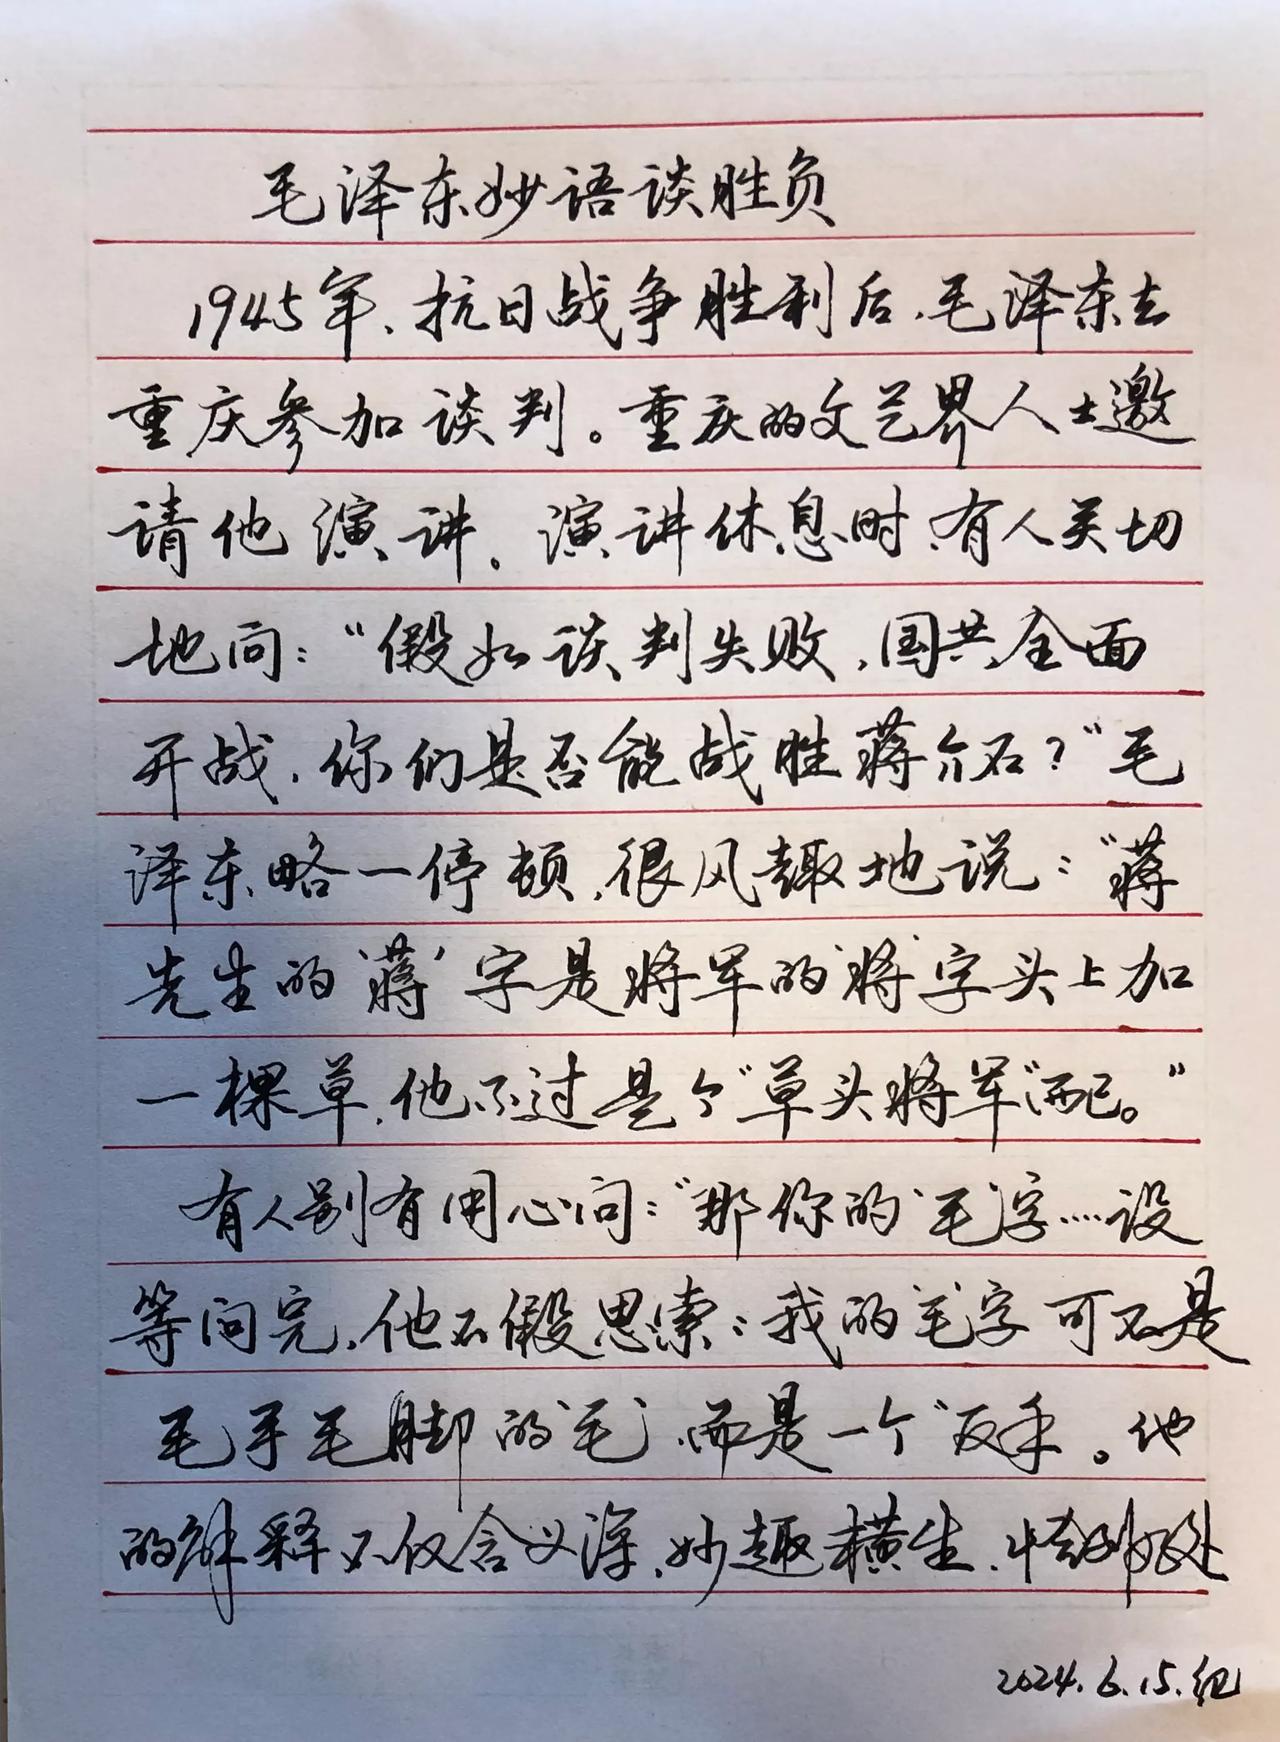 毛泽东妙语谈胜负
1945年、抗日战争胜利后、毛泽东去
重庆参加谈判。重庆的文艺界人士邀
请他演讲。演讲休息时、有人关切
地问：“假如谈判失败，国共全面
开战，你们是否能战胜蒋介石？”毛
泽东略一停顿，很风趣地说：“蒋
先生的‘蒋’字是将军的‘将’字头上加
一棵草，他不过是个“草头将军”而已。”
有人别有用心问：“那你的‘毛’字……没
等问完，他不假思索：我的‘毛’字可不是
毛手毛脚的‘毛’，而是一个“反手。他
的解释不仅含义深，妙趣横生，恰到好处
2024.6.15.